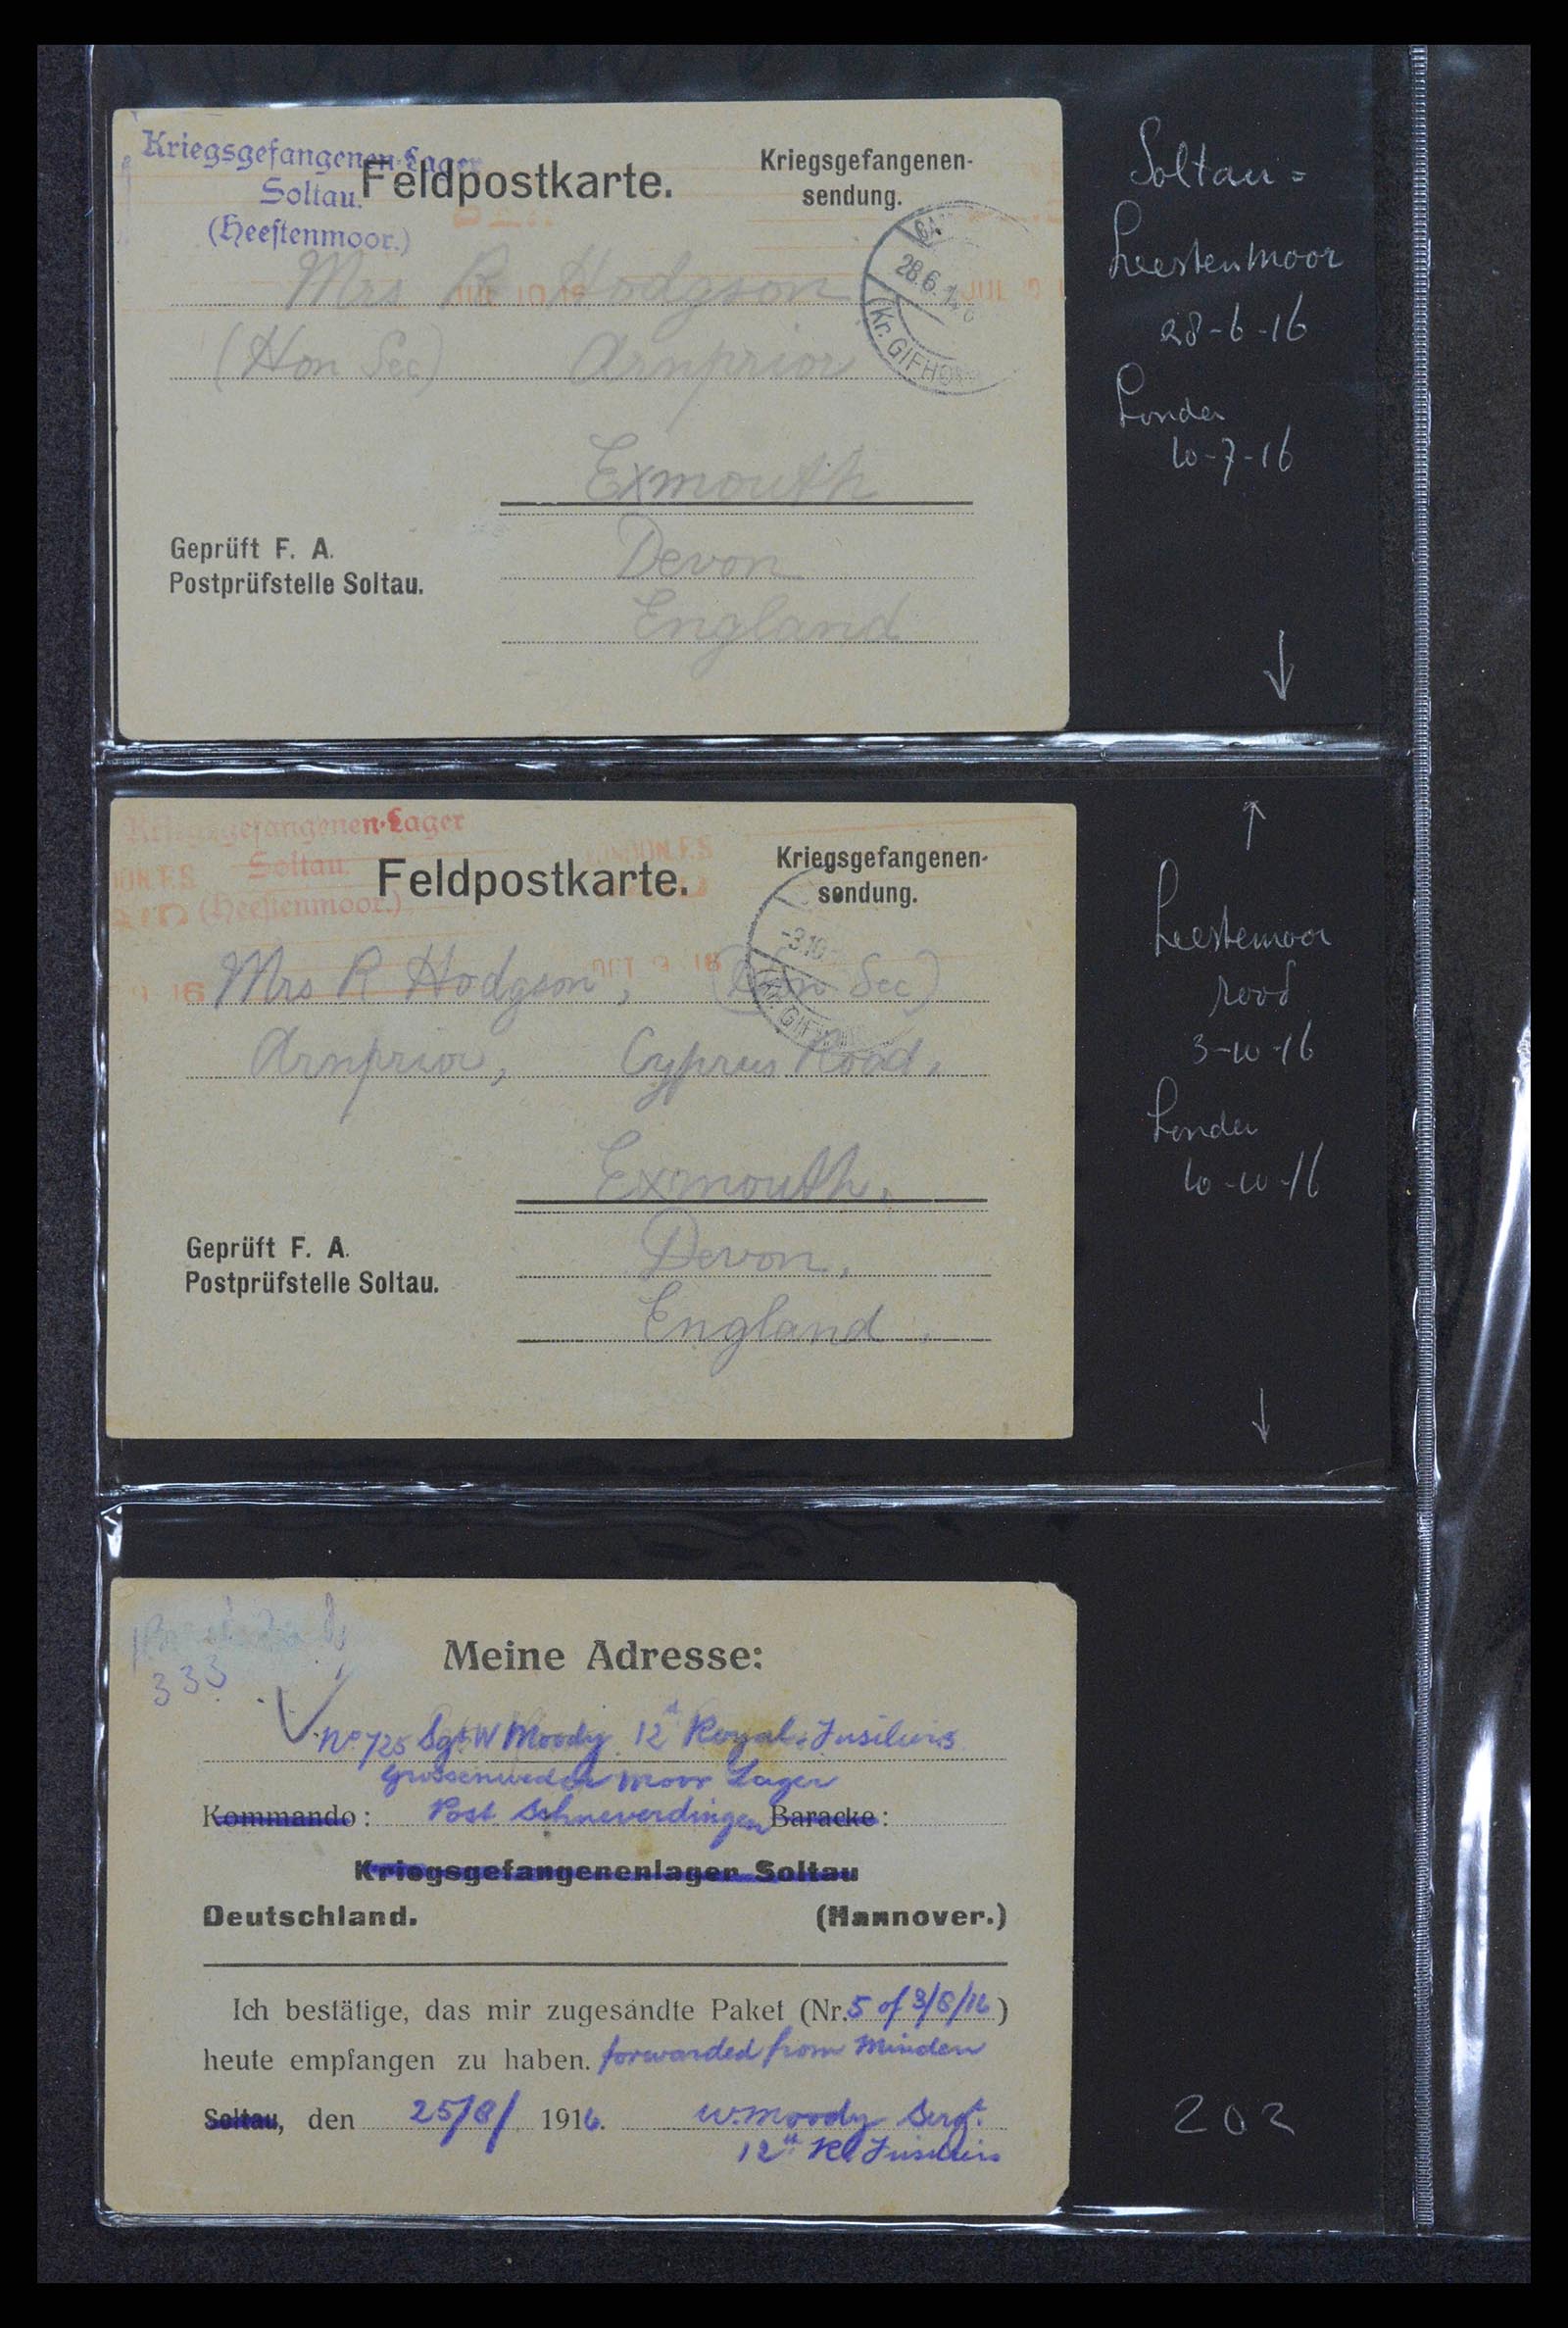 Kriegsgefangenen-Lager
Soltau.
(Heestenmoor.)
Feldpostkarte.
Kriegsgefangenen-
sendung.
28.6.
Kr. GIFHO
JUL 10 16
Mrs R Hodgson
(Hon Sec) Arnprior
Exmouth
Devon
England
Geprüft F. A.
Postprüfstelle Soltau.
Soltau =
Heestenmoor
28-6-16
Londen
10-7-16
↓
Kriegsgefangenen-Lager
Soltau.
(Heestenmoor.)
LONDON F.S
Feldpostkarte.
Kriegsgefangenen-
sendung.
-3.10
OCT 9 16
Mrs R Hodgson, (Hon Sec)
Arnprior, Cyprus Road,
Exmouth,
Devon,
England,
Geprüft F. A.
Postprüfstelle Soltau.
↑
Heestemoor
rood
3-10-16
Londen
10-10-16
↓
333
Meine Adresse:
No 725 Sgt W Moody 12th Royal Fusiliers
Grossenweder Moor Lager
Kommando: Post Schneverdingen Baracke:
Kriegsgefangenenlager Soltau
Deutschland. (Hannover.)
Ich bestätige, das mir zugesandte Paket (Nr. 5 of 3/8/16)
heute empfangen zu haben. forwarded from Minden
Soltau, den 25/8/ 1916. W. Moody Sergt.
12th Rl Fusiliers
202